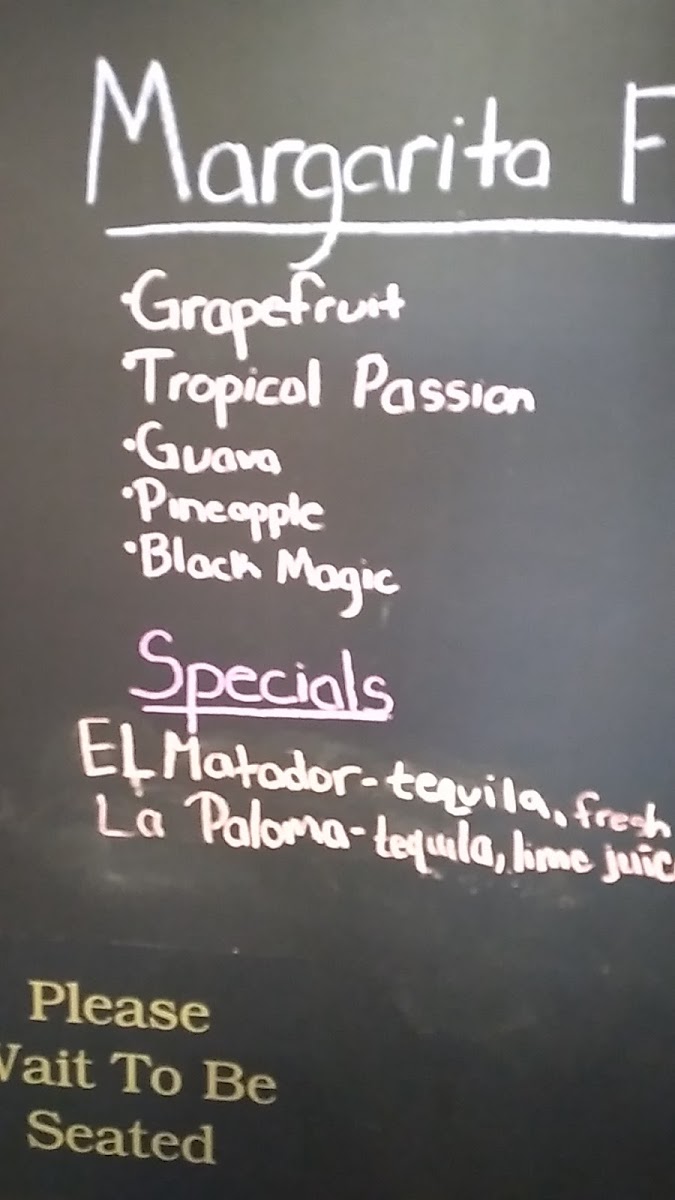 Margarita F
·Grapefruit
·Tropical Passion
·Guava
·Pineapple
·Black Magic
Specials
EL Matador-tequila, fresh
La Paloma-tequila, lime juic
Please
Wait To Be
Seated